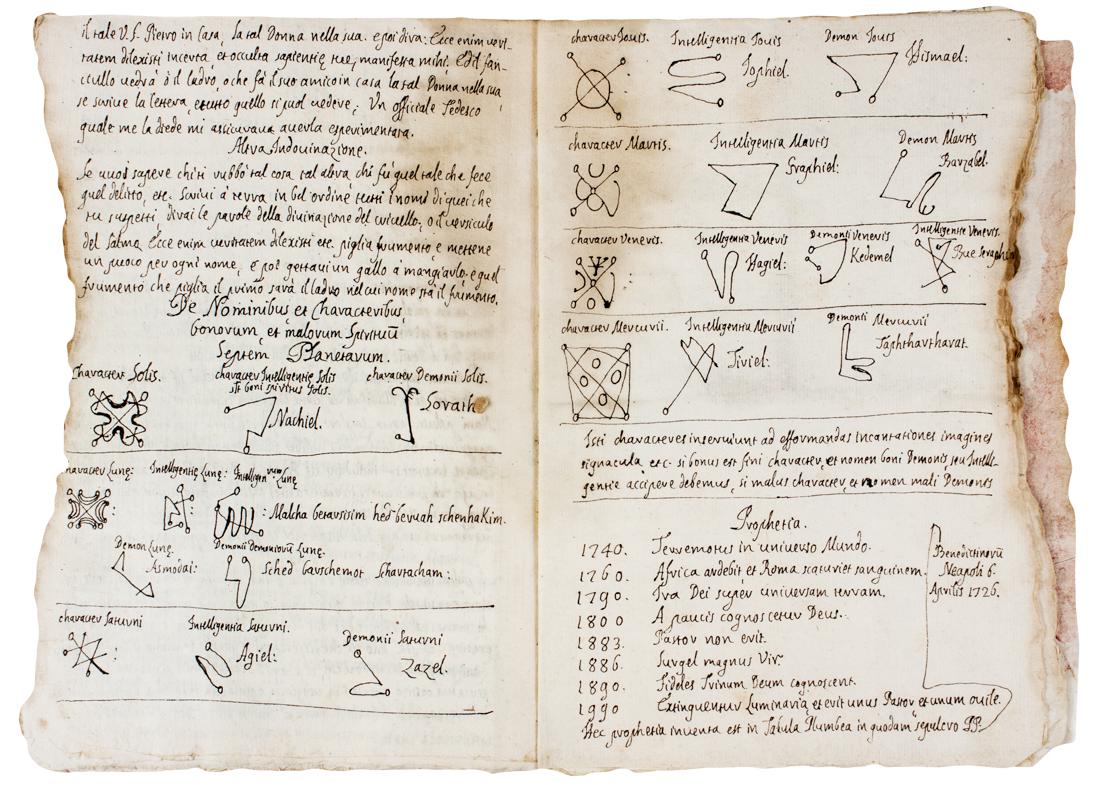 il tale V. S. Pietro in Casa, la tal Donna nella sua. e poi dirai: Ecce enim veri_
tatem dilexisti incerta, et occulta sapientię tuę, manifesta mihi. Ed il fan_
ciullo vedrà ò il ladro, o che fà il suo amico in casa la tal Donna nella sua,
se scrive la lettera, e tutto quello si puol vedere; Un officiale Tedesco
quale me la diede mi assicurava averla esperimentata.
Altra Indovinazione.
Se vuoi sapere chi ti rubbò tal cosa tal altra, chi fù quel tale che fece
quel delitto, etc. Scrivi à terra in bel ordine tutti i nomi di quei che
tu suspetti dirai le parole della divinazione del crivello, o il versiculo
del Salmo Ecce enim veritatem dilexisti etc. piglia frumento, e mettene
un puoco per ogni nome, e poi gettarui un gallo à mangiarlo, e quel
frumento che piglia il primo sarà il ladro nel cui nome sta il frumento.
De Nominibus et Characteribus,
bonorum, et malorum Spirituũ
Septem Planetarum.
Character Solis.
character Intelligentię Solis
sit boni spiritus Solis.
Nachiel.
character Demonii Solis.
Sorath
haracter Lunę:
Intelligentię Lunę:
Intelligen tiarum Lunę
: Malcha betarsisim hed beruah schenhaKim.
Demon Lunę.
Asmodai:
Demonii Demoniorũ Lunę.
Sched barschemot Schartacham:
character Saturni
:
Intelligentia Saturni.
Agiel:
Demonii Saturni
Zazel.
character Iouis.
Intelligentia Iouis
Iophiel.
Demon Iouis
Hismael:
character Martis.
Intelligentia Martis
Graphiel:
Demon Martis
Barzabel.
character Veneris.
Intelligentia Veneris
Hagiel:
Demonii Veneris
Kedemel
Intelligentię Veneris.
Bne Seraphim
character Mercurii.
Intelligentia Mercurii
Tiriel:
Demonii Mercurii
Taphthartharat.
Isti characteres inserviunt ad efformandas incantationes imagines
signacula etc. si bonus est fini character, et nomen boni Demonis, seu Intelli_
gentię accipere debemus, si malus character, et nomen mali Demonis
Prophetia.
1740. Terremotus in universo Mundo.
1760. Africa ardebit, et Roma scaturiet sanguinem.
1790. Ira Dei super universam terram.
1800 A paucis cognoscetur Deus.
1883. Pastor non erit.
1886. Surget magnus Vir.
1890. Fideles Trinum Deum cognoscent.
1990 Extinguentur Luminaria, et erit unus Pastor et unum ouile.
Hec prophetia inventa est in Tabula Plumbea in quodam sepulcro PP.
Benedictinorũ
Neapoli 6.
Aprilis 1726.